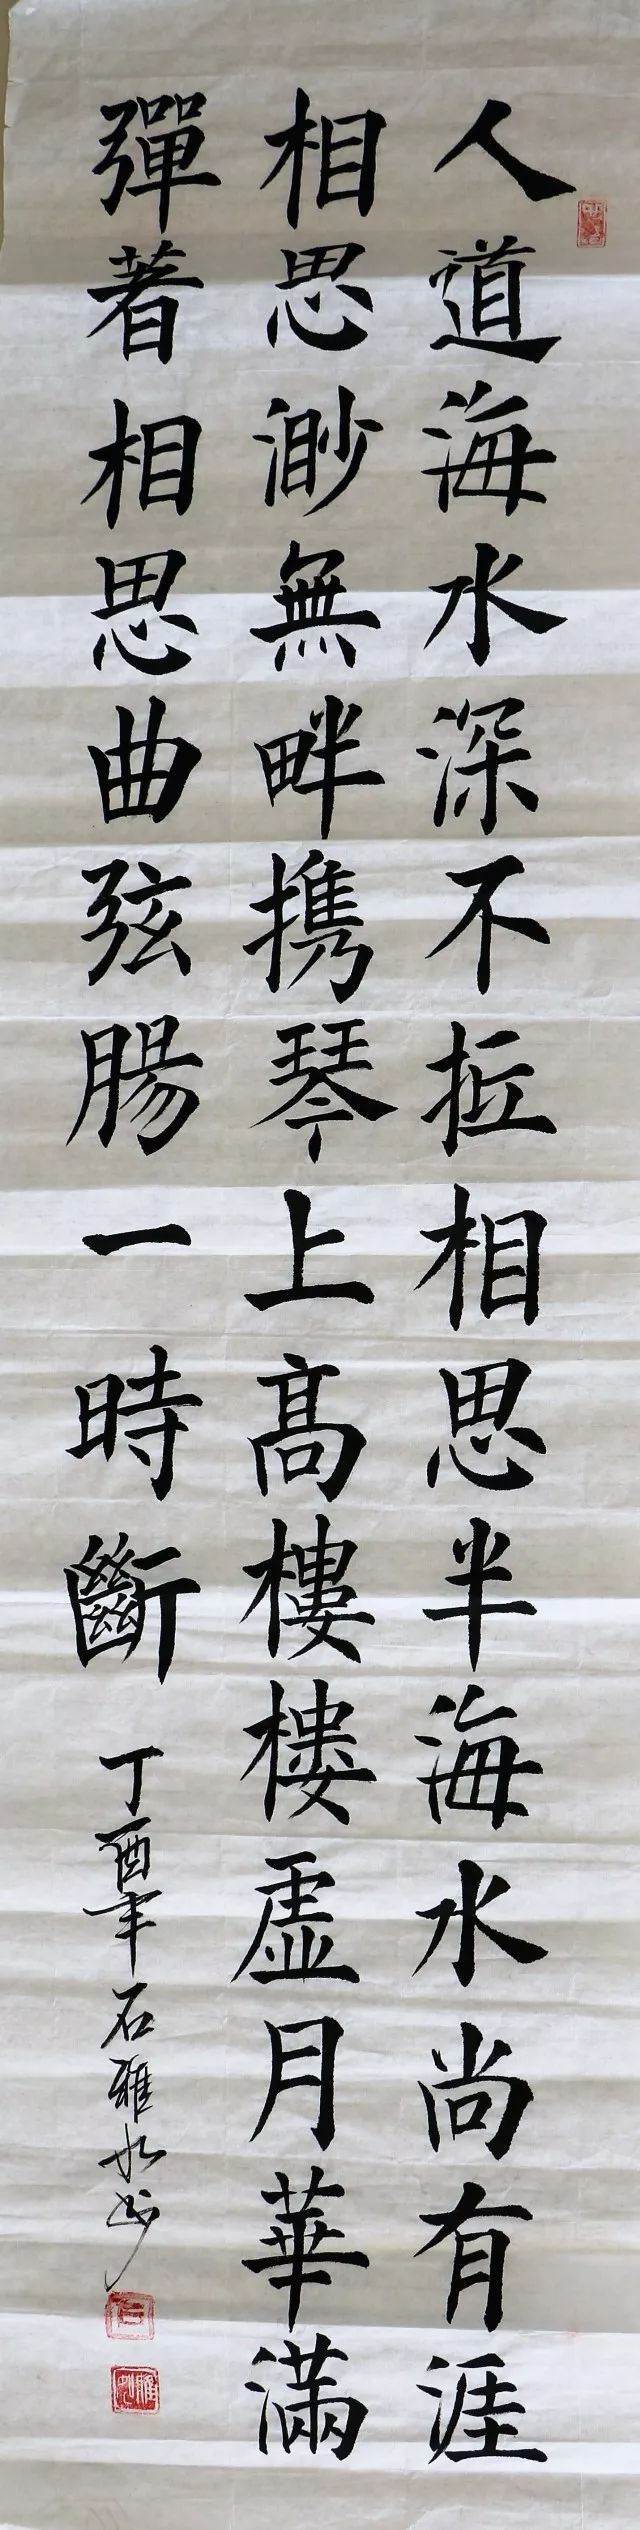 人道海水深不抵相思半海水尚有涯
相思渺無畔携琴上高樓樓虛月華滿
彈著相思曲弦腸一時斷
丁酉年石雅书